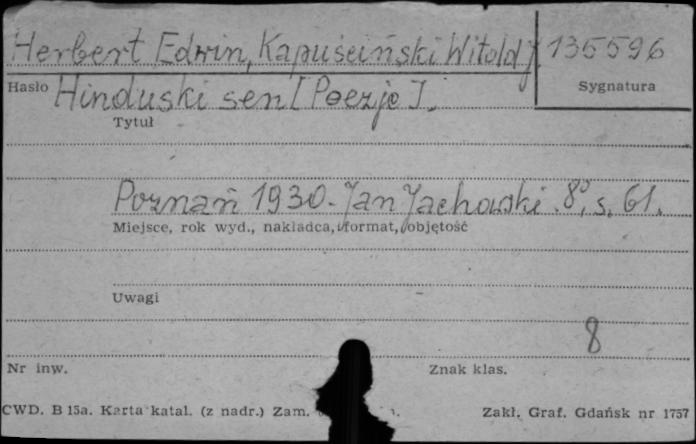 Herbert Edwin, Kapuściński Witold 135596
Hasło Hinduski sen [Poezje]. Sygnatura
Tytuł
Poznań 1930. Jan Jachowski. 8°, s. 61.
Miejsce, rok wyd., nakładca, format, objętość
Uwagi
8
Nr inw. Znak klas.
CWD. B 15a. Karta katal. (z nadr.) Zam. Zakł. Graf. Gdańsk nr 1757